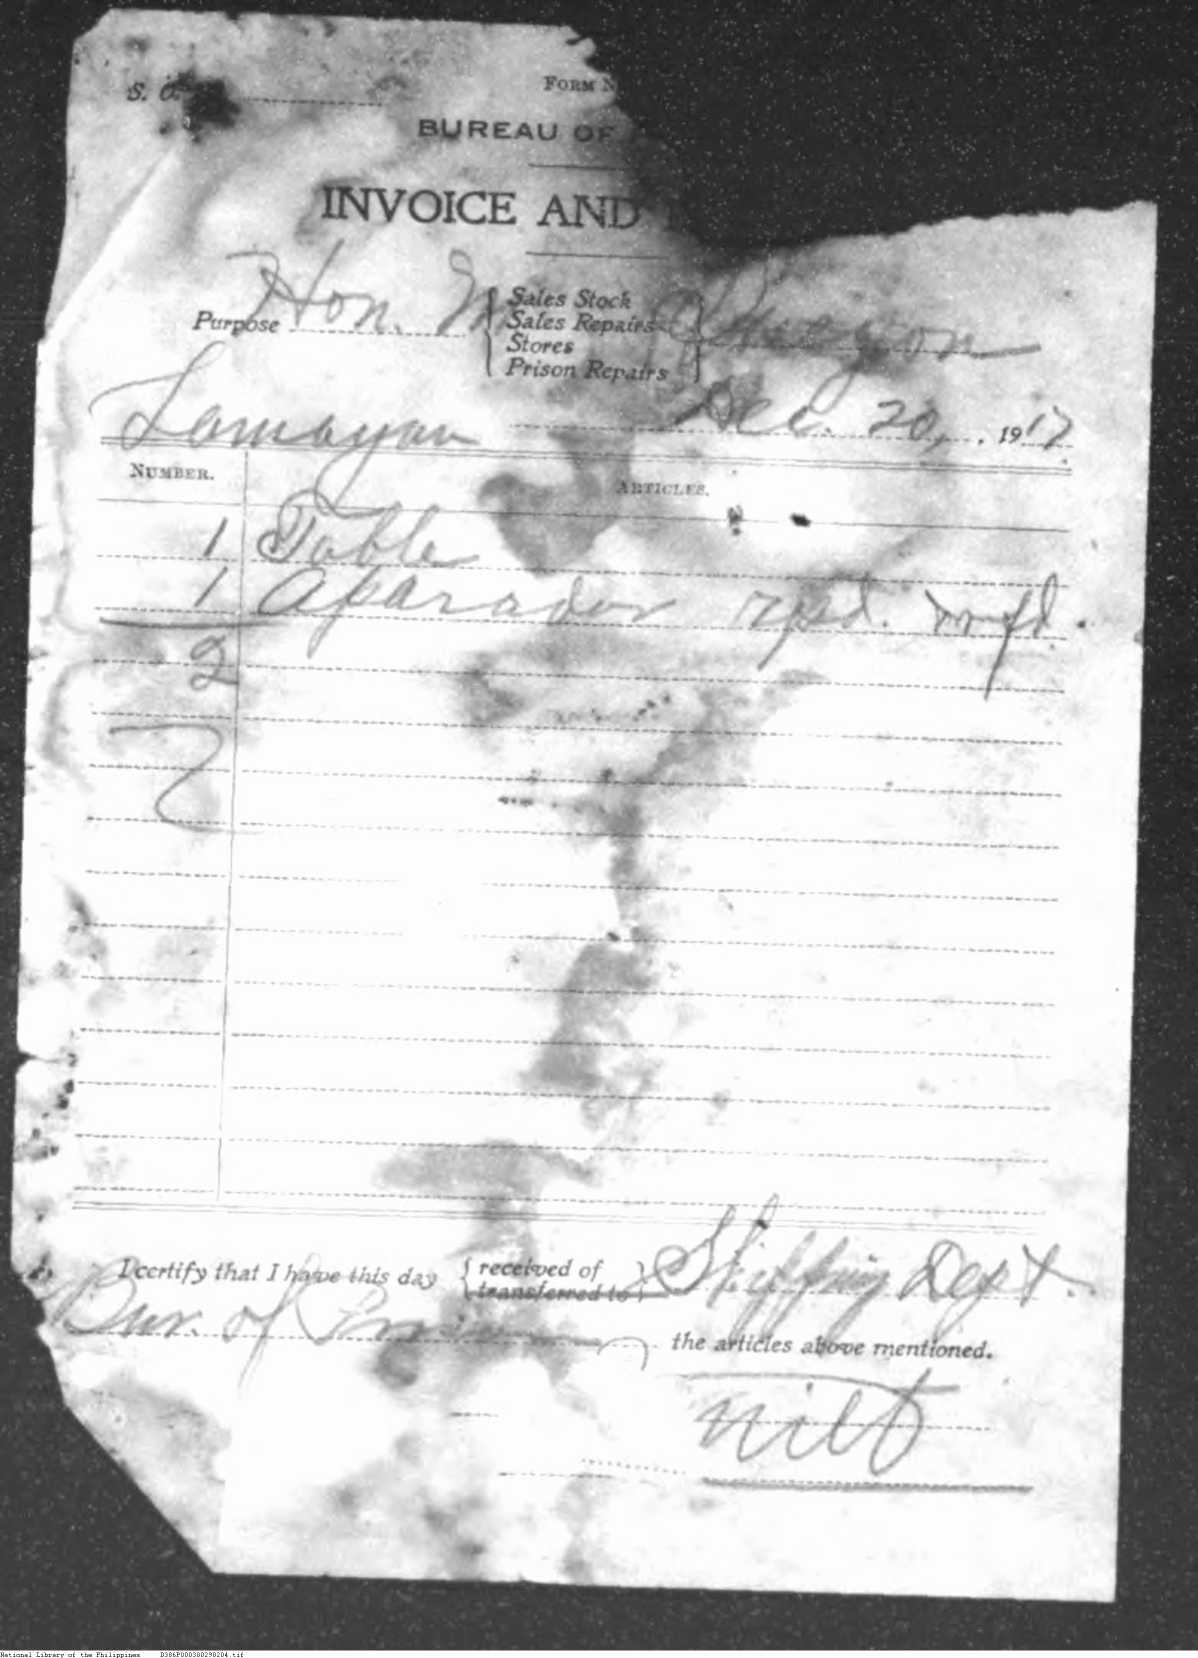 S. O.
FORM
BUREAU OF
INVOICE AND
Hon. M Quezon
Purpose
Sales Stock
Sales Repairs
Stores
Prison Repairs
Dec. 20, 1917
NUMBER. ARTICLES.
1 Table
1 Aparador rprd.
2
I certify that I have this day received of transferred to Shipping Dept.
Bur. of
the articles above mentioned.
National Library of the Philippines